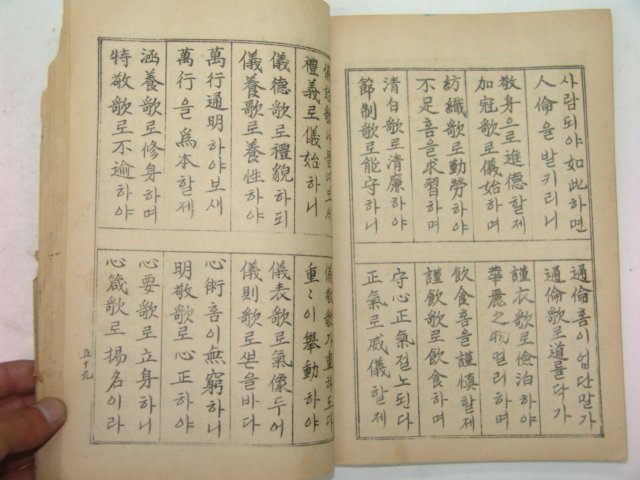 사람되야如此하면
人倫을발키리니
通倫音이업단말가
通倫歌로道를닥가
敬身으로進德할제
加冠歌로儀始하며
謹衣歌로儉泊하야
華麗之物멀리하며
紡織歌로勤勞하야
不足音을求習하며
飮食音을謹愼할제
謹飮歌로飮食하며
清白歌로清廉하야
節制歌로能守하니
守心正氣절노된다
正氣로威儀할제
禮義로儀始하니
重〻이擧動하야
儀德歌로禮貌하되
儀養歌로養性하야
儀表歌로氣像두어
儀則歌로쏜을바다
萬行通明하야보새
萬行을爲本할제
心術音이無窮하니
明敬歌로心正하야
涵養歌로修身하며
特敬歌로不逾하야
心要歌로立身하니
心箴歌로揚名이라
五十九